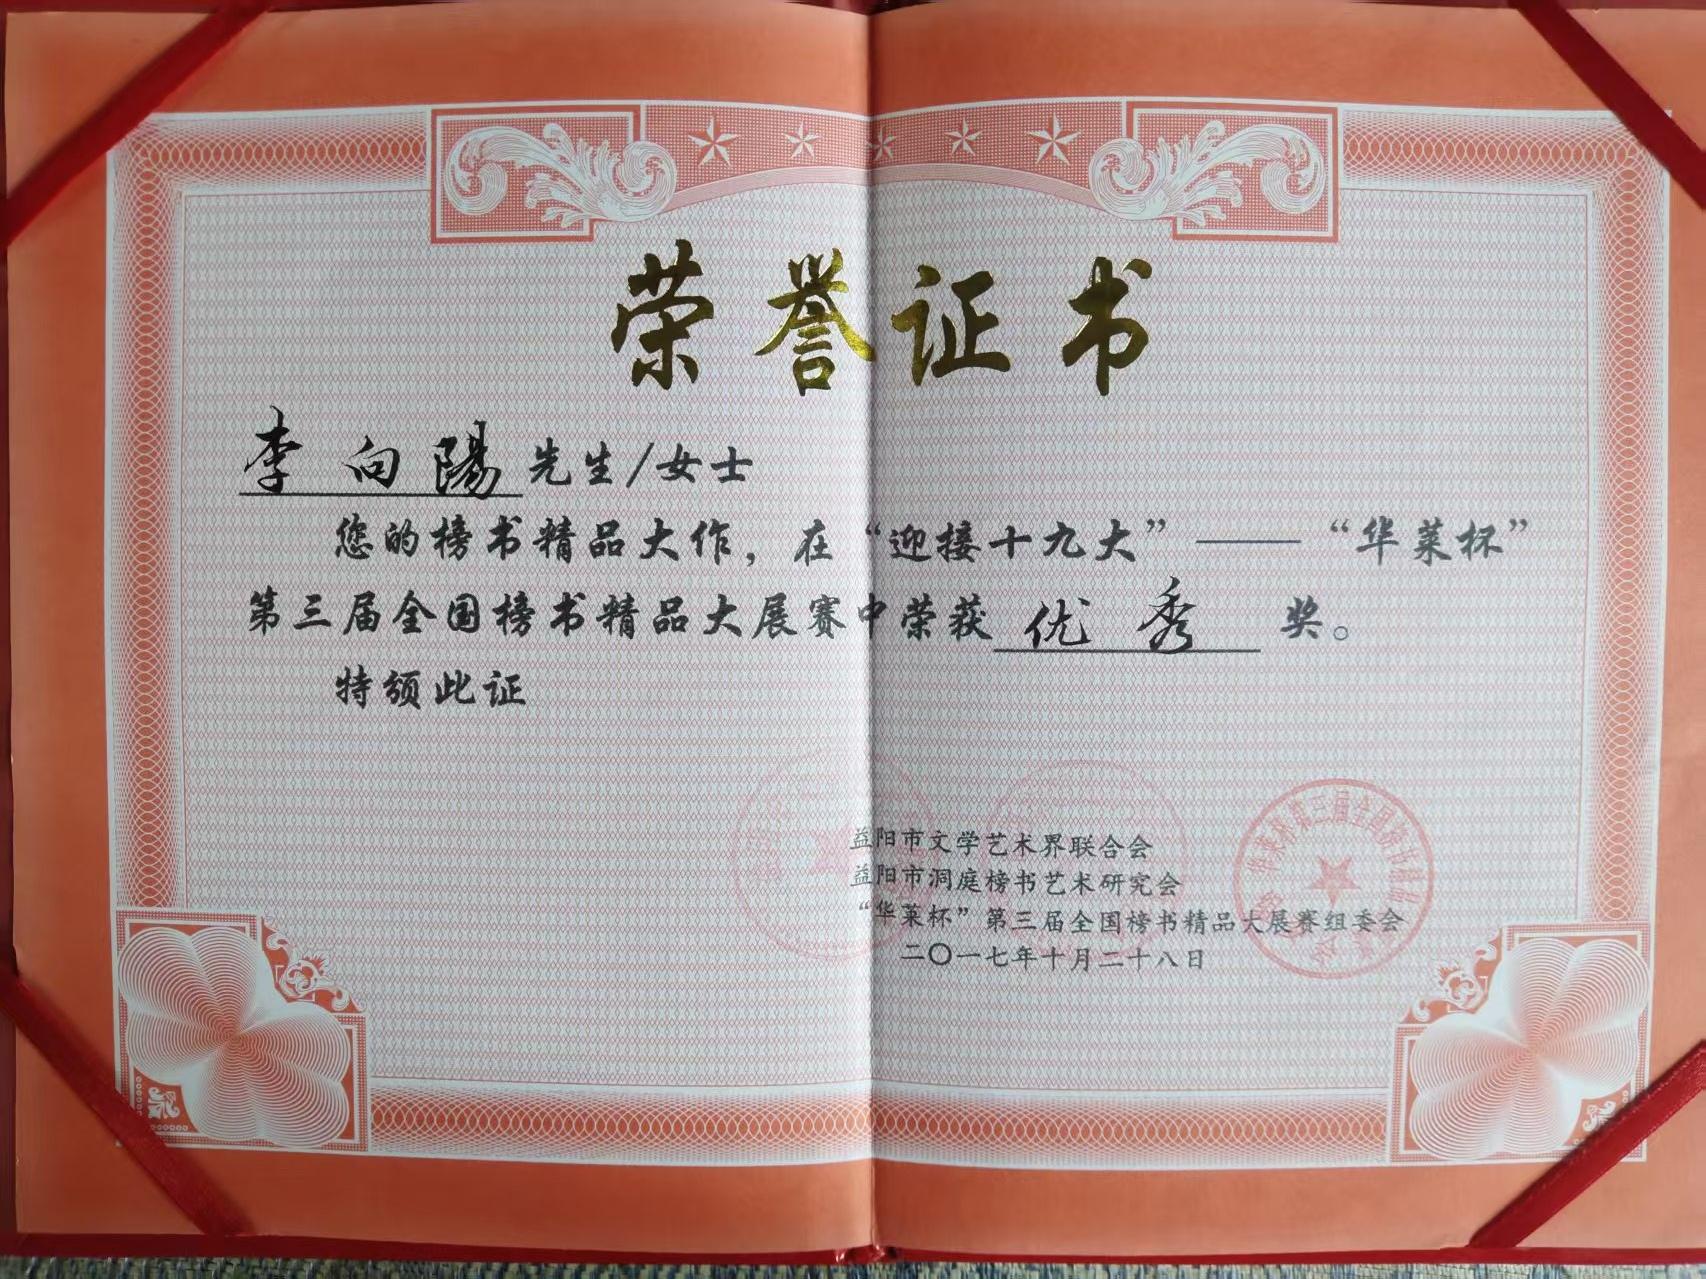 荣誉证书
李向陽先生/女士
您的榜书精品大作，在“迎接十九大”——“华莱杯”
第三届全国榜书精品大展赛中荣获优秀奖。
特颁此证
益阳市文学艺术界联合会
益阳市洞庭榜书艺术研究会
“华莱杯”第三届全国榜书精品大展赛组委会
二〇一七年十月二十八日